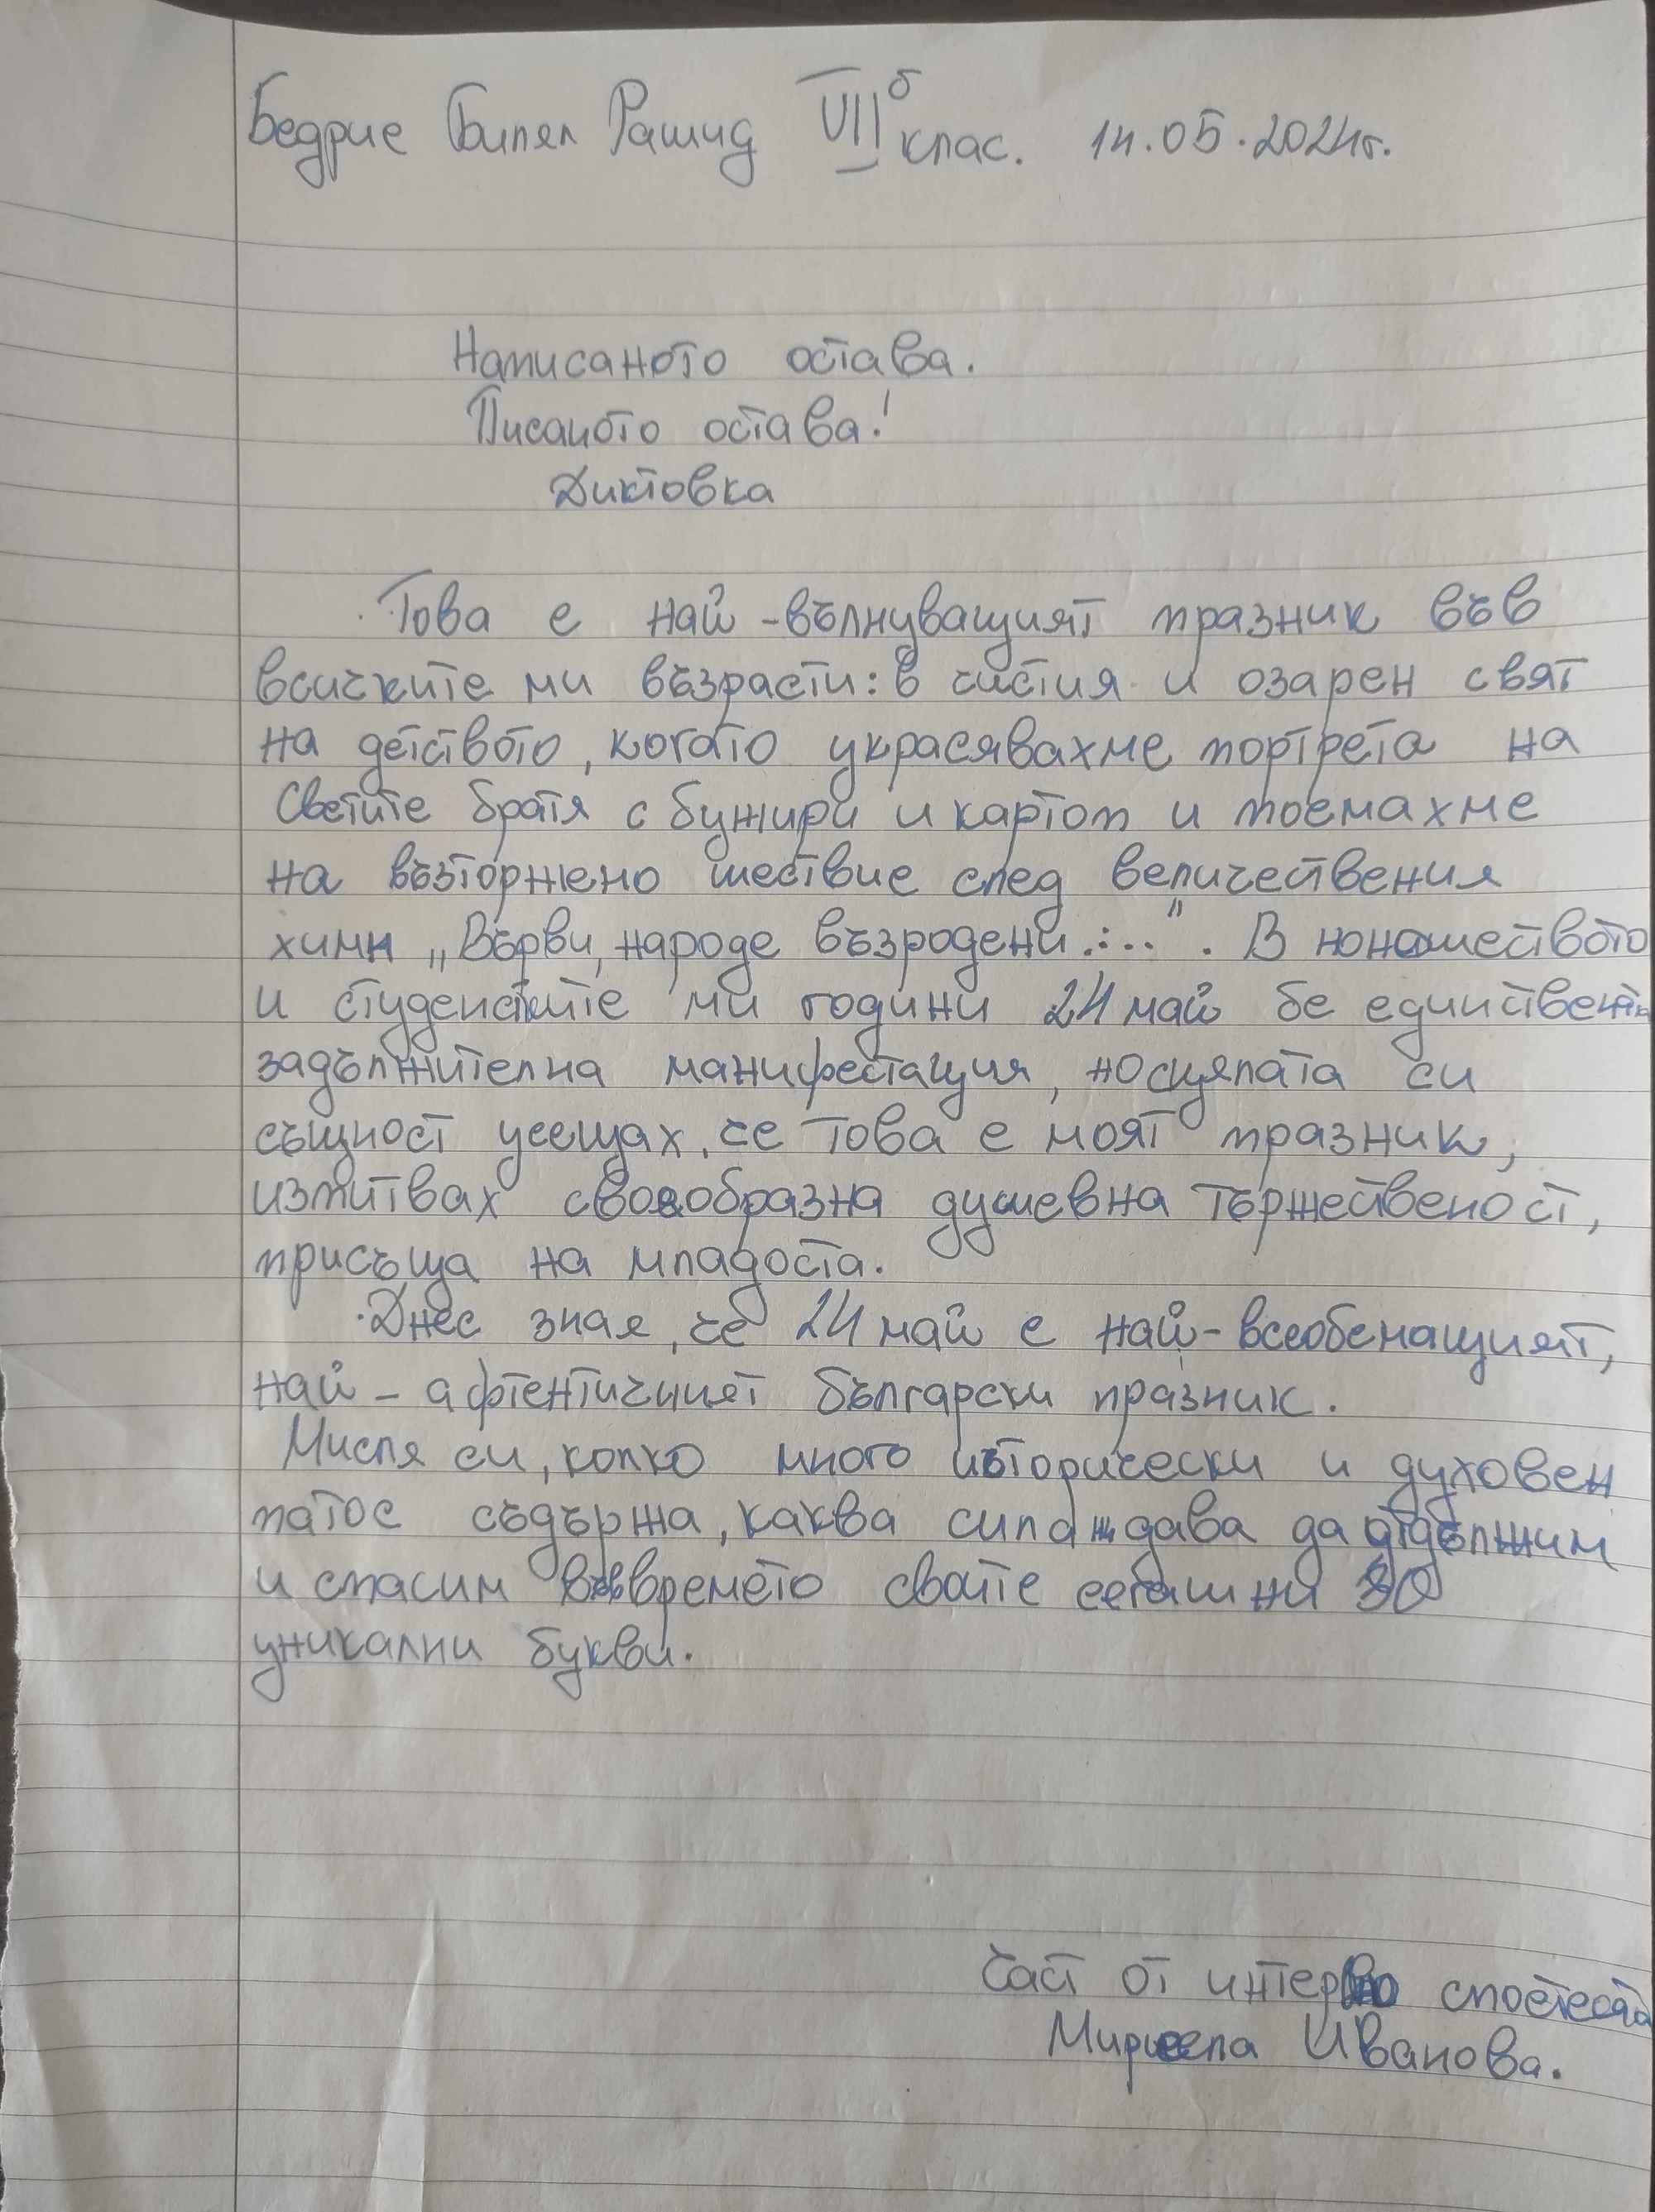 Бедрие Билял Рашид VII б клас. 14.05.2024г.
Написаното остава.
Писаното остава!
Диктовка
Това е най-вълнуващият празник във
всичките ми възрасти: в чистия и озарен свят
на детството, когато украсявахме портрета на
Светите братя с бужири и картом и поемахме
на възторжено шествие след величествения
химн „Върви, народе възродени...". В юношеството
и студенските ми години 24 май бе единствената
задължителна манифестация, но сцялата си
същност усещах, че това е моят празник,
изпитвах своеобразна душевна тържественост,
присъща на младоста.
Днес зная, че 24 май е най-всеобемащият,
най-афтентичният български празник.
Мисля си, колко много исторически и духовен
патос съдържа, каква сила ждава да отдължим
и спасим във времето своите сегашни 30
уникални букви.
Част от интервю споетесата
Мирела Иванова.